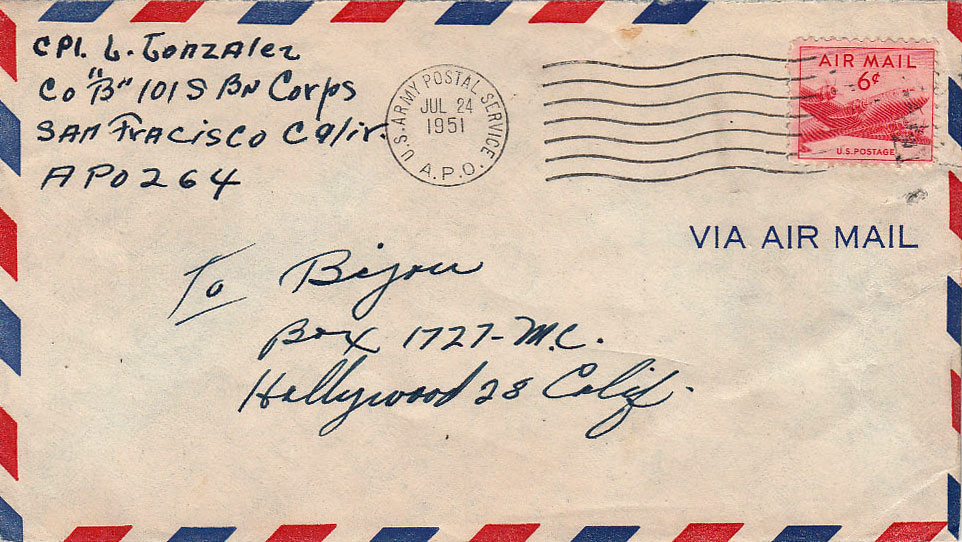 CPl. L. Gonzalez
Co "B" 101 S Bn Corps
San Fracisco Calif.
APO 264
U.S. ARMY POSTAL SERVICE.
JUL 24
1951
A.P.O.
AIR MAIL
6¢
U.S. POSTAGE
VIA AIR MAIL
To Bijou
Box 1727-M.C.
Hollywood 28 Calif.